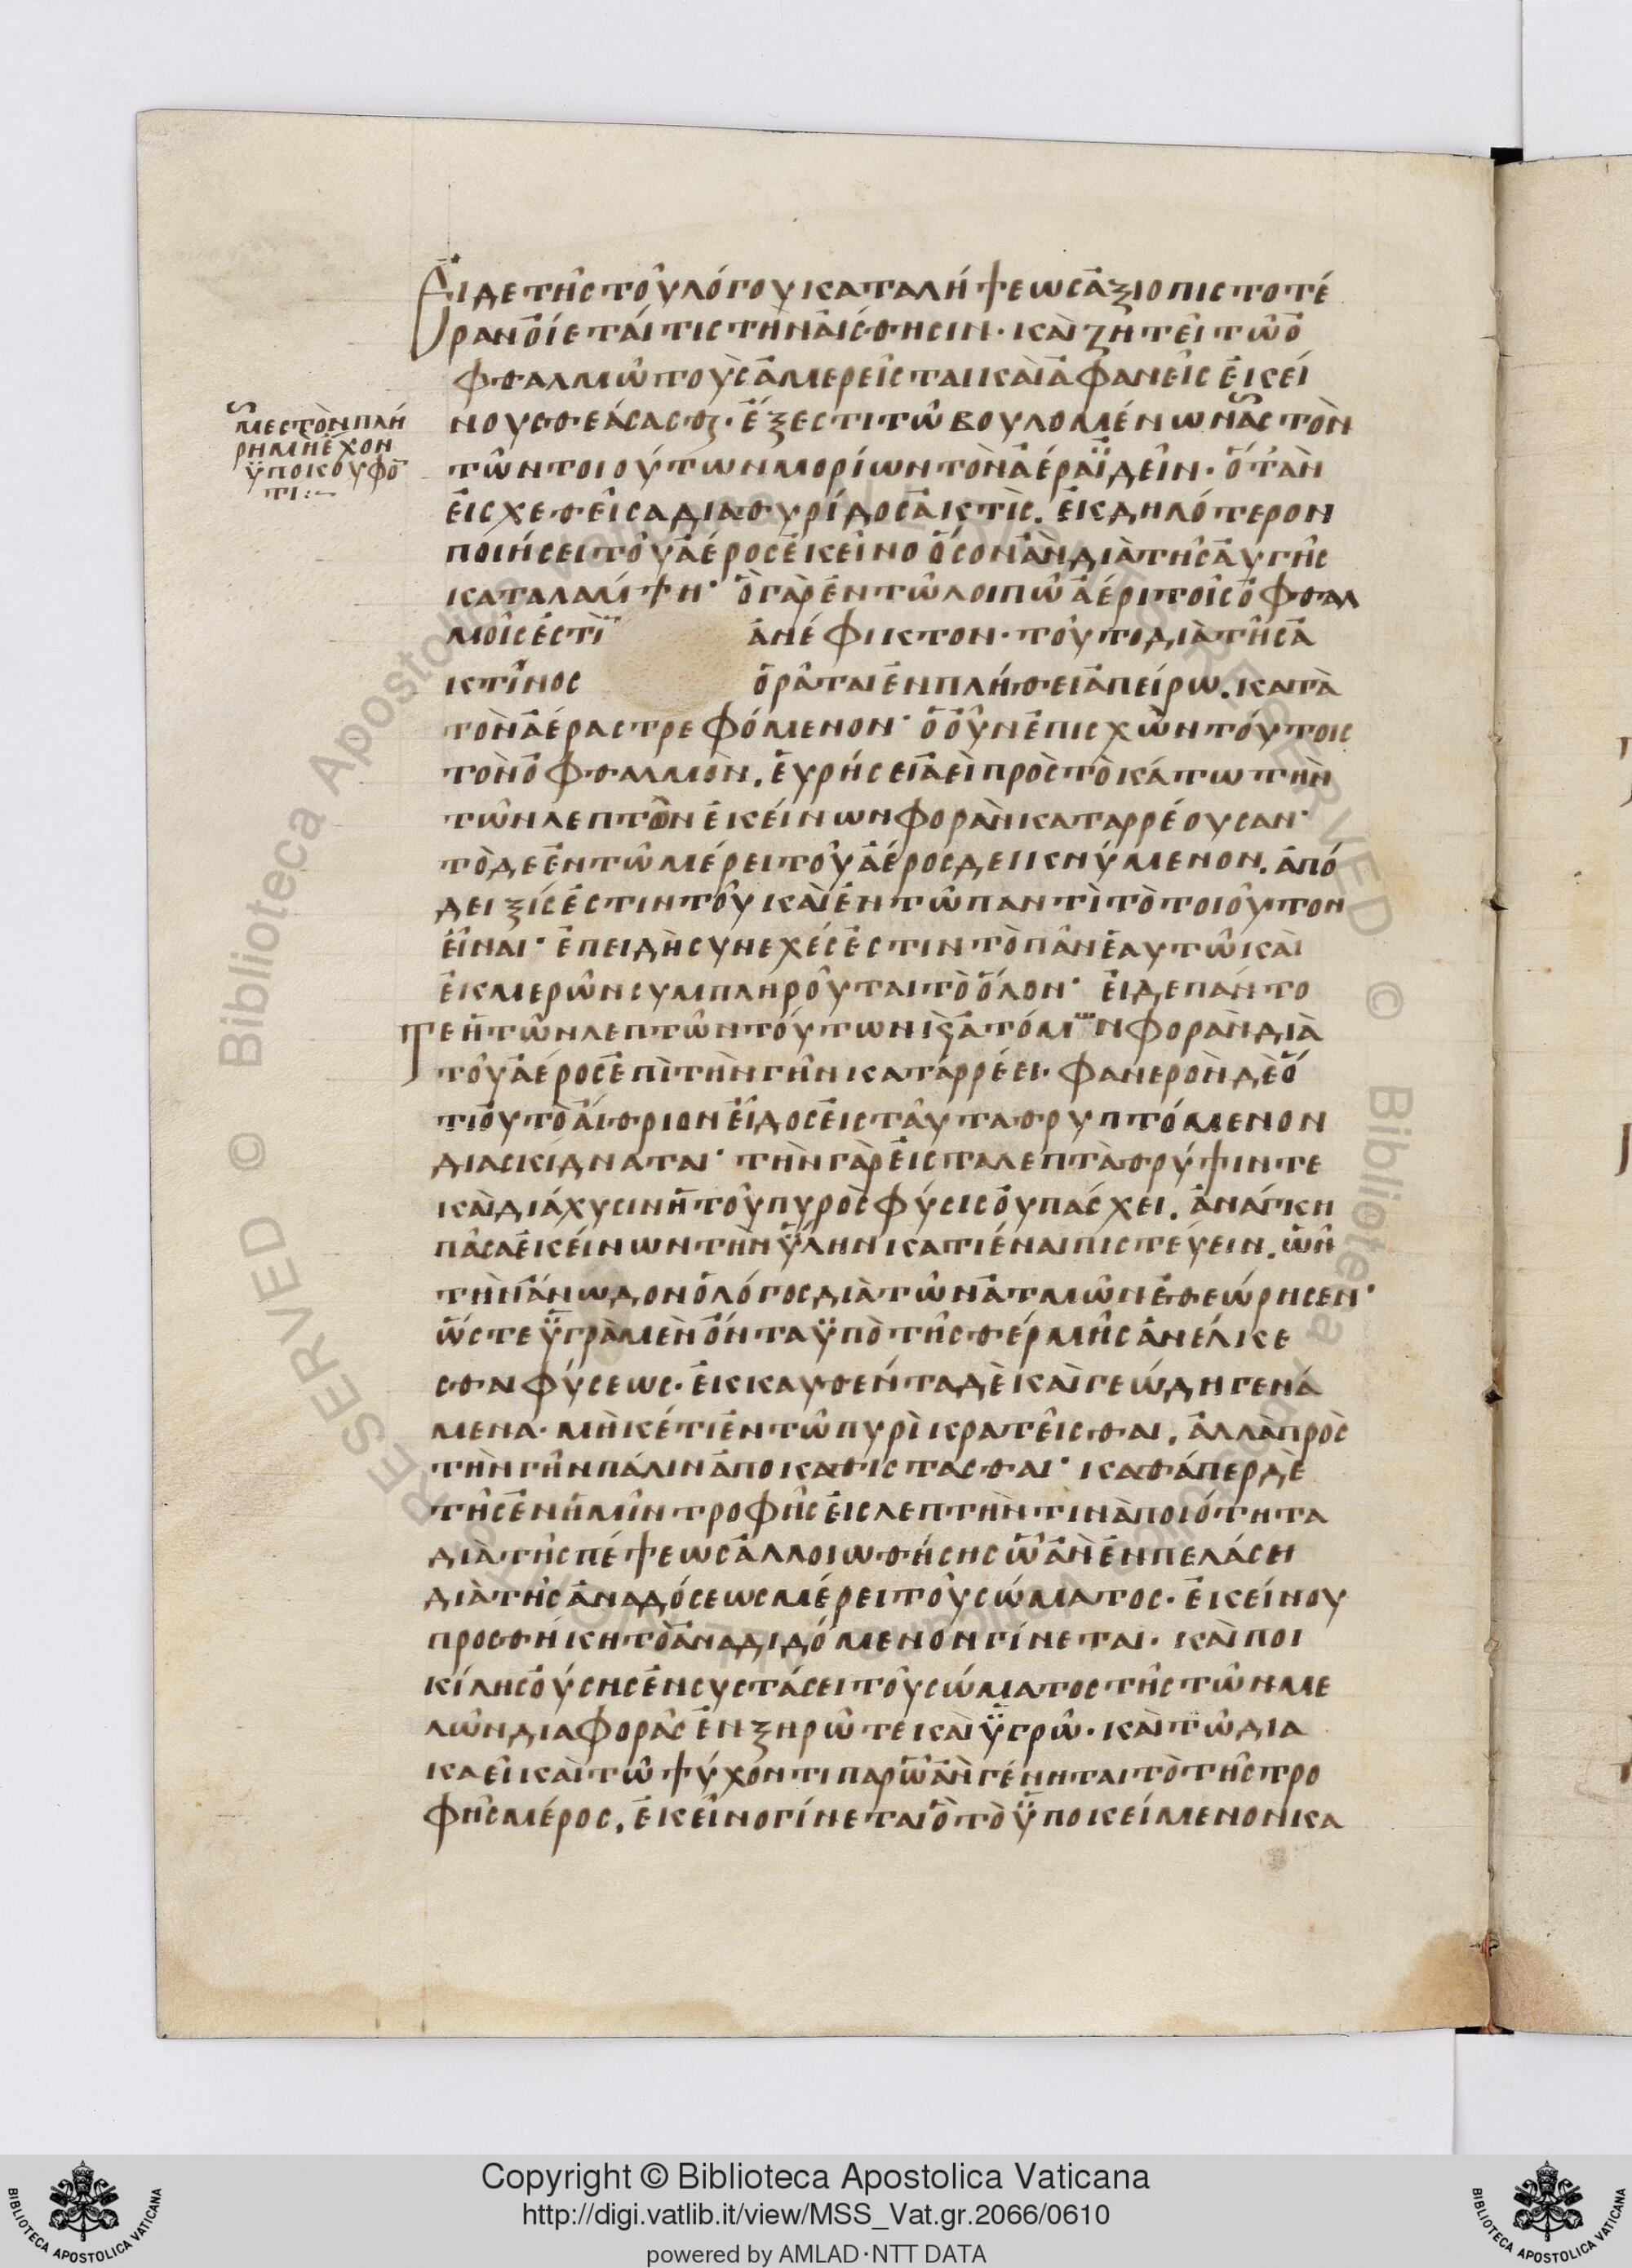 Εἰ δε τῆς τοῦ λόγου καταλήψεως ἀξιοπιστοτέ
ραν ὀίεταί τις τὴν ἄισθησιν· καὶ ζητεῖ τῶ ὀ
φθαλμῶ τοὺς ἀμερεῖς τε καὶ ἀφανεῖς ἐκεί
νους θεάσασθαι· ἔξεστι τῶ βουλομένω
τῶν τοιούτων μορίων τὸν ἀέρα ϊδεῖν· ὅτ' ἂν
εἰσχεθεῖσα δια θυρίδος ἀκτὶς. ἐκδηλότερον
ποιήσει τοῦ ἀέρος ἐκεῖνο ὅσον ἂν διὰ τῆς ἀυγῆς
καταλάμψη· ὃ γὰρ ἐν τῶ λοιπῶ ἀέρι τοῖς ὀφθαλ
μοῖς ἐστὶ̈ ἀνέφικτον· τοῦτο διὰ τῆς ἀ
κτῖνος ὁρᾶται ἐν πλήθει ἀπείρω. κατὰ
τὸν ἀέρα στρεφόμενον· ὁ οὖν ἐπισχὼν τούτοις
τὸν ὀφθαλμὸν. ἑυρήσει ἀεὶ πρὸς τὸ κάτω τὴν
τῶν λεπτῶν ἐκείνων φορὰν καταρρέουσαν·
τὸ δε ἐν τῶ μέρει τοῦ ἀέρος δεικνύμενον. ἀπό
δειξίς ἐστιν τοῦ καὶ ἐν τῶ παντὶ τὸ τοιοῦτον
εἶναι· ἐπειδὴ συνεχές ἐστιν τὸ πᾶν ἑαυτῶ καὶ
ἐκ μερῶν συμπληροῦται τὸ ὅλον· εἰ δε πάντο
τε ἡ τῶν λεπτῶν τούτων κ(αὶ) ἀτόμων φορὰν διὰ
τοῦ ἀέρος ἐπὶ τὴν γῆν καταρρέει· φανερὸν δὲ ὅ
τι ὀυ τὸ ἄιθριον εἶδος εἰς ταῦτα θρυπτόμενον
διασκίδναται· τὴν γὰρ εἰς τα λεπτὰ θρύψιν τε
καὶ διάχυσιν ἡ τοῦ πυρὸς φύσις ὀυ πάσχει. ἀνάγκη
πᾶσα ἐκείνων τὴν ὕλην κατιέναι πιστεύειν. ὧν
τὴν ἄνωδον ὁ λόγος διὰ τῶν ἀτμῶν ἐθεώρησεν·
ὥστε ϋγρὰ μὲν ὄντα ϋπὸ τῆς θερμῆς ἀνέλκε
σθαι φύσεως· ἐκκαυθέντα δὲ καὶ γεώδη γενά
μενα· μηκέτι ἐν τῶ πυρὶ κρατεῖσθαι. ἀλλὰ πρὸς
τὴν γῆν πάλιν ἀποκαθίστασθαι· καθάπερ δε
τῆς ἐν ἡμῖν τροφῆς εἰς λεπτὴν τινὰ ποιότητα
διὰ τῆς πέψεως ἀλλοιωθήσης ᾧ ἂν ἐνπελάση
διὰ τῆς ἀναδόσεως μέρει τοῦ σώματος· ἐκείνου
προσθήκη τὸ ἀναδιδόμενον γίνεται· καὶ ποι
κίλης ὀύσης ἐν συστάσει τοῦ σώματος τῆς τῶν με
λῶν διαφορᾶς ἐν ξηρῶ τε καὶ ϋγρῶ· καὶ τῶ δια
καεῖ καὶ τῶ ψύχοντι παρ' ὧ ἂν γένηται τὸ τῆς τρο
φῆς μέρος. ἐκεῖνο γίνεται ὃ τὸ ϋποκείμενον κα
μεστὸν πλή
ρη μὴ ἔχον
ϋποκουφό
τι:~
Copyright © Biblioteca Apostolica Vaticana
http://digi.vatlib.it/view/MSS_Vat.gr.2066/0610
powered by AMLAD·NTT DATA
BIBLIOTECA APOSTOLICA VATICANA
BIBLIOTECA APOSTOLICA VATICANA